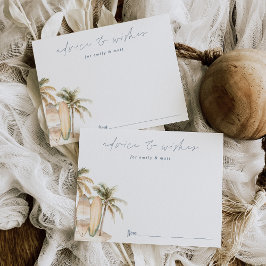 advice & wishes
for emily & matt
advice & wishes
for emily & matt